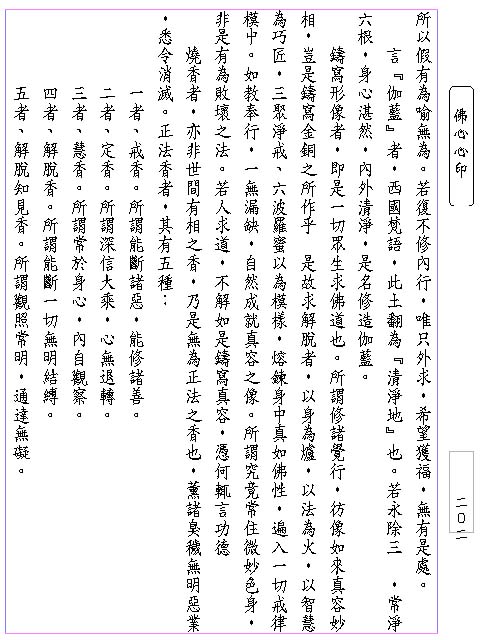 佛心心印
所以假有為喻無為。若復不修內行，唯只外求，希望獲福，無有是處。
言『伽藍』者，西國梵語，此土翻為『清淨地』也。若永除三　，常淨
六根，身心湛然，內外清淨，是名修造伽藍。
鑄寫形像者，即是一切眾生求佛道也。所謂修諸覺行，彷像如來真容妙
相，豈是鑄寫金銅之所作乎　是故求解脫者，以身為爐，以法為火，以智慧
為巧匠，三聚淨戒、六波羅蜜以為模樣，熔鍊身中真如佛性，遍入一切戒律
模中。如教奉行，一無漏缺，自然成就真容之像。所謂究竟常住微妙色身，
非是有為敗壞之法。若人求道，不解如是鑄寫真容，憑何輒言功德
燒香者，亦非世間有相之香，乃是無為正法之香也，薰諸臭穢無明惡業
，悉令消滅。正法香者，其有五種：
一者、戒香。所謂能斷諸惡，能修諸善。
二者、定香。所謂深信大乘，心無退轉。
三者、慧香。所謂常於身心，內自觀察。
四者、解脫香。所謂能斷一切無明結縛。
五者、解脫知見香。所謂觀照常明，通達無礙。
二０二